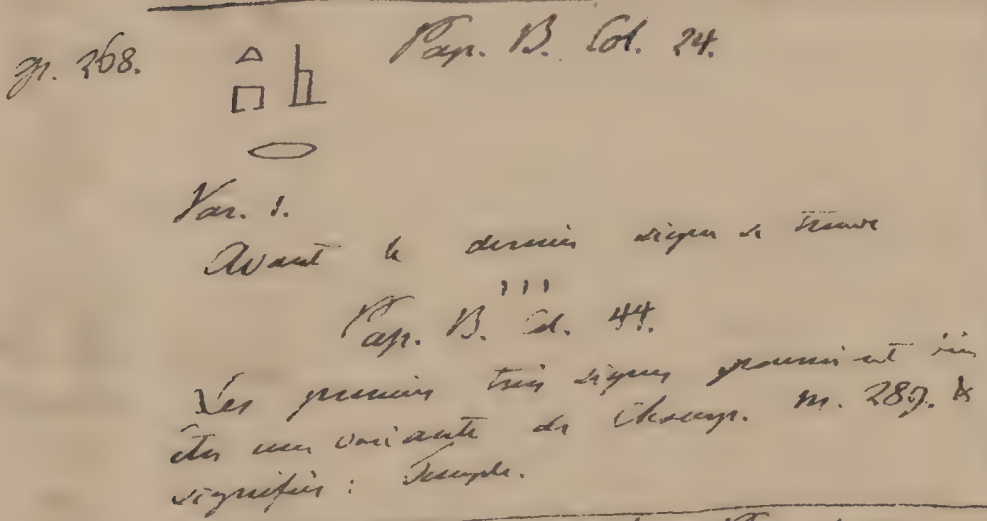 gr. 268. Pap. B. Col. 24.
Var. 1.
Avant le dernier signe se trouve
Pap. B. Col. 44.
Les premiers trois signes pourraient bien
être une variante de Champ. n. 289. &
signifier: Temple.